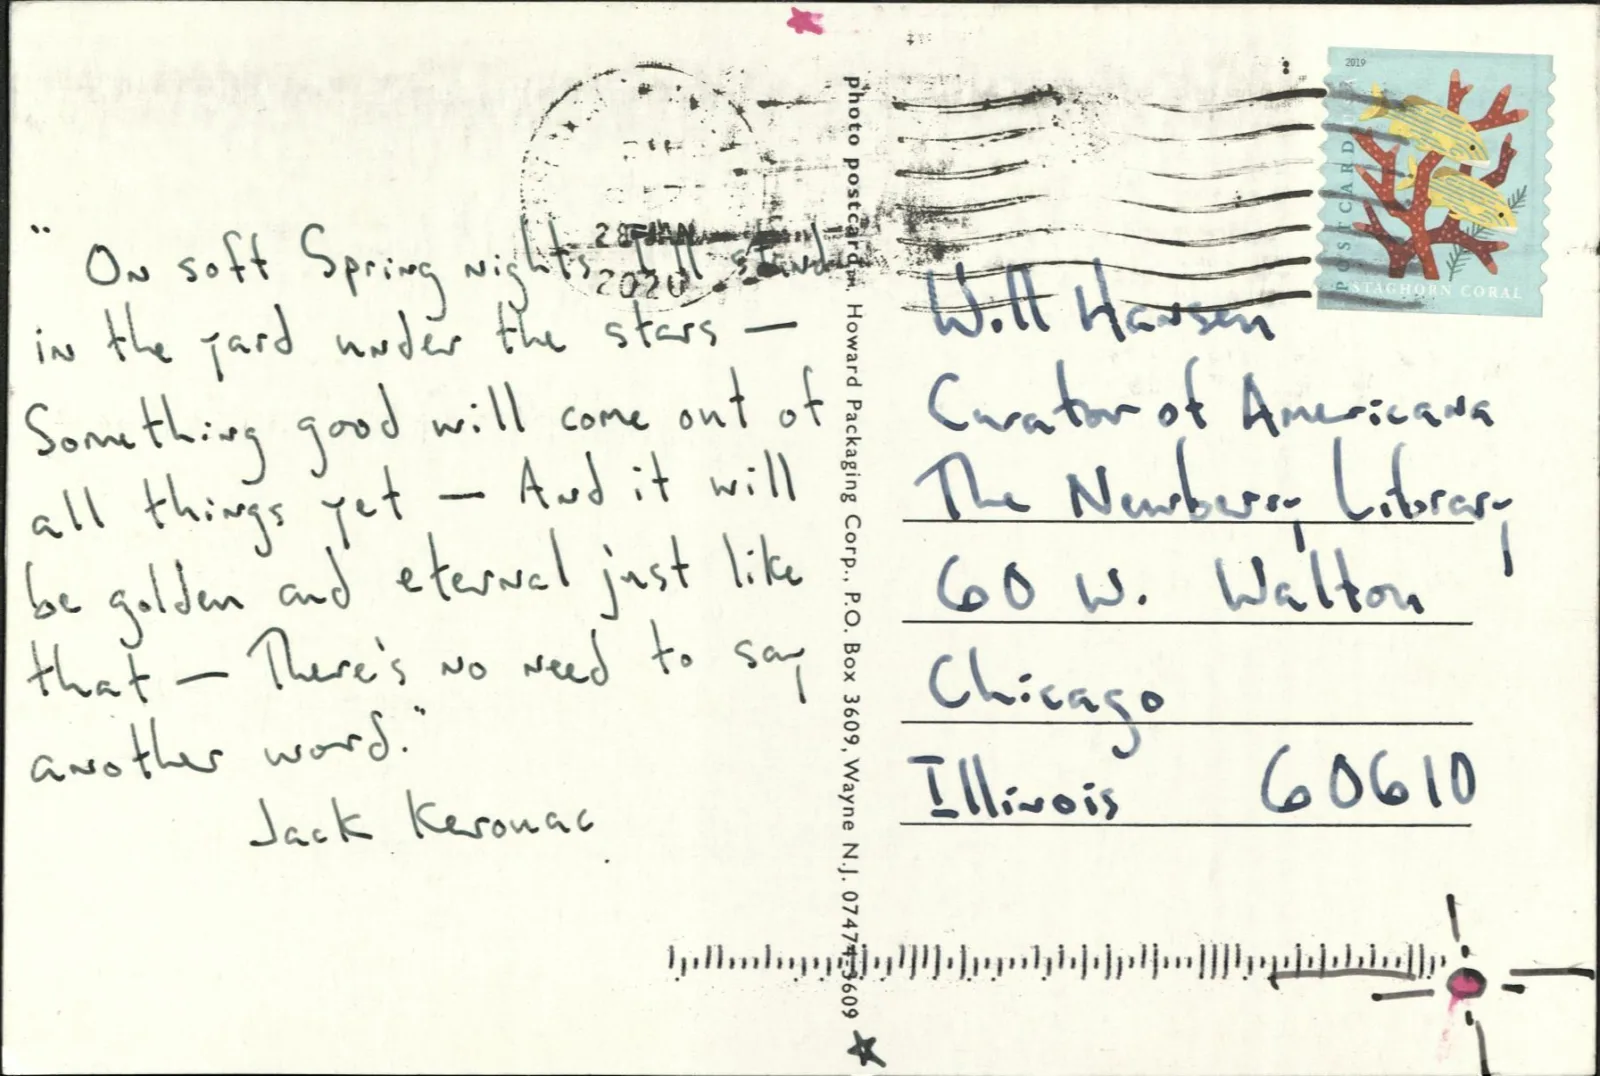 "On soft Spring nights I'll stand
in the yard under the stars —
Something good will come out of
all things yet — And it will
be golden and eternal just like
that — There's no need to say
another word."
Jack Kerouac
28 JAN
2020
photo postcard Howard Packaging Corp., P.O. Box 3609, Wayne N.J. 07474-3609
2019
POSTCARD
STAGHORN CORAL
Will Hansen
Curator of Americana
The Newberry Library
60 W. Walton
Chicago
Illinois 60610